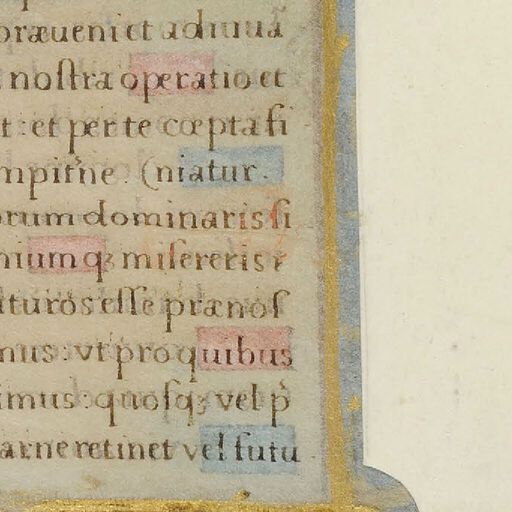 præueni et adiuuā
nostra operatio et
t: et per te cœpta fi
mpitr̃ne. (niatur.
orum dominaris si
nium qꝫ misereris r
ituros esse prænos
mus: vt pro quibus
imus: quosqꝫ vel p̃
arne retinet vel futu